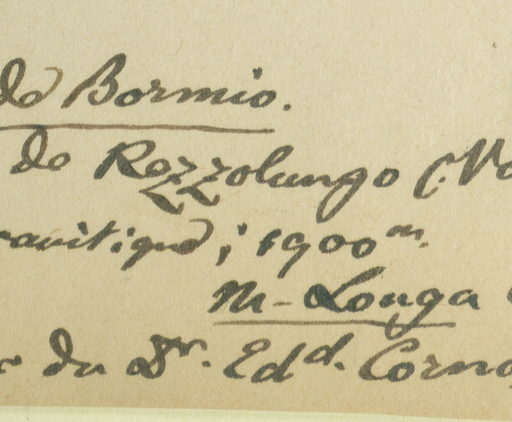 de Bormio.
de Rezzolungo (Va
ravitique; 1900 m.
M- Longa
du Dr. Edd. Corna